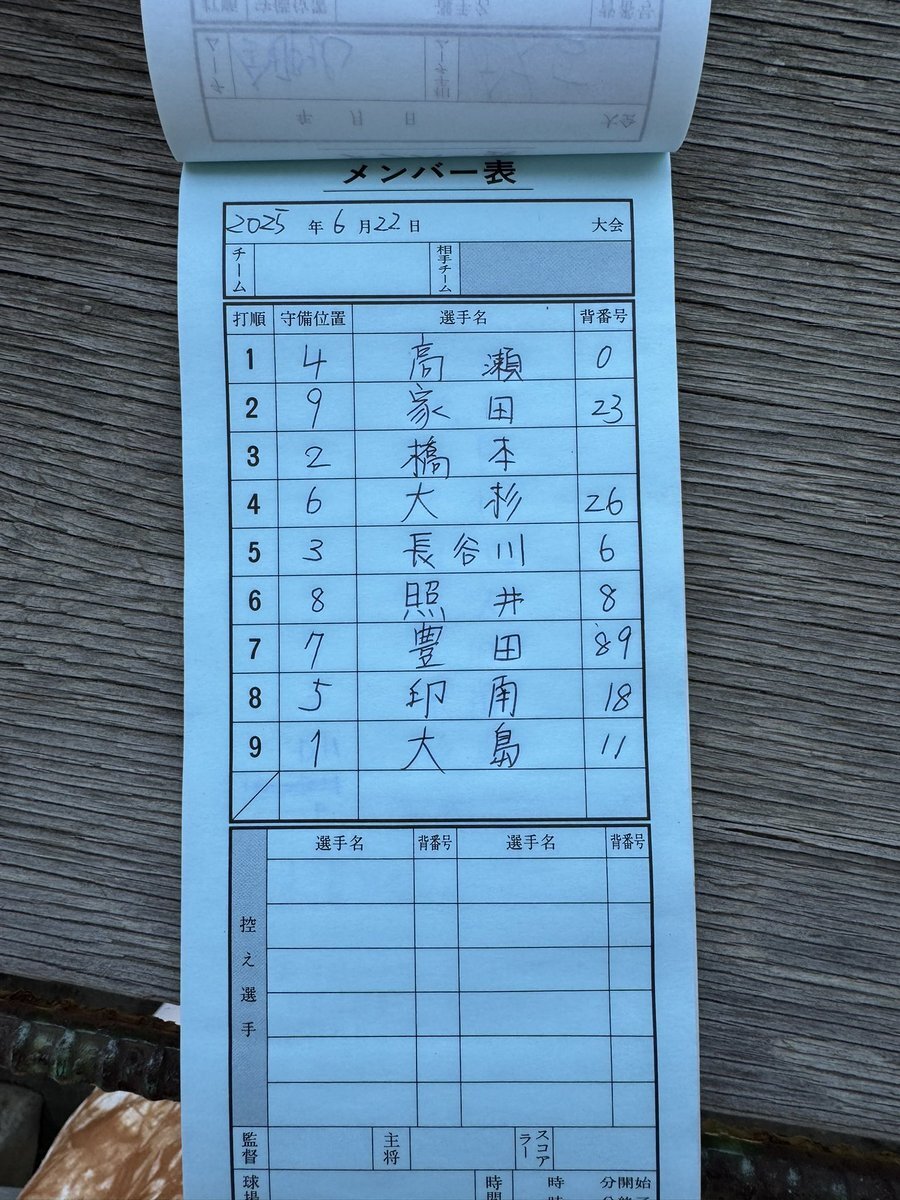 メンバー表
2025年6月22日 大会
チーム 相手チーム
打順 守備位置 選手名 背番号
1 4 高瀬 0
2 9 家田 23
3 2 橋本
4 6 大杉 26
5 3 長谷川 6
6 8 照井 8
7 7 豊田 89
8 5 印南 18
9 1 大島 11
選手名 背番号 選手名 背番号
控え選手
監督 主将 スコアラー
球場 時間 時 分開始